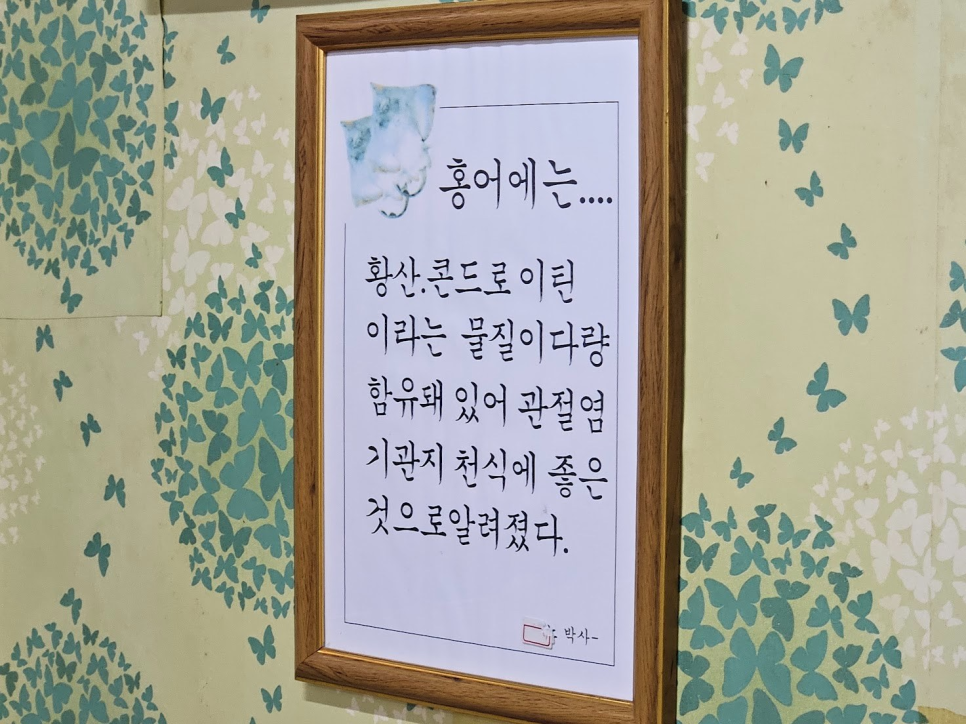 홍어에는....
황산.콘드로이틴
이라는 물질이다량
함유돼 있어 관절염
기관지 천식에 좋은
것으로알려졌다.
박사-